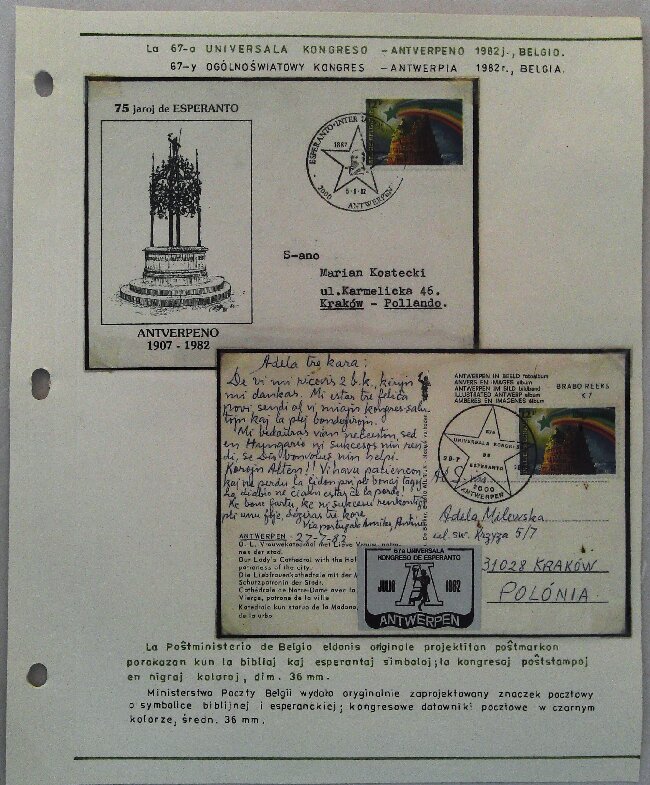 La 67-a UNIVERSALA KONGRESO -ANTVERPENO 1982j., BELGIO.
67-y OGÓLNOŚWIATOWY KONGRES -ANTWERPIA 1982r., BELGIA.
75 jaroj de ESPERANTO
ANTVERPENO
1907 - 1982
ESPERANTO-INTER
1887
5-6-82
2000 ANTWERPEN
S-ano
Marian Kostecki
ul.Karmelicka 46.
Kraków - Pollando.
Adela tre kara:
De vi mi ricevis 2 b.k., kiujn
mi dankas. Mi estas tre feliĉa
povi sendi al vi miajn kongresan salu
tojn kaj la plej bondezirojn.
Mi bedaŭras vian neĉeeston, sed
en Hungario ni sukcesos nin renkon
di, se Dio bonvolus nin helpi.
Korajn Alten!! Vi havu paciencon
kaj ne perdu la fidon pri pli bonaj tagoj
La diablo ne ĉiam estas ĉe la pordo!
27-7-82
ANTWERPEN IN BEELD fotoalbum
ANVERS EN IMAGES album
ANTWERPEN IM BILD bildband
ILLUSTRATED ANTWERP album
AMBERES EN IMAGENES album
BRABO REEKS
K7
67A
UNIVERSALA KONGRESO
DE
ESPERANTO
2000
ANTWERPEN
Adela Milewska
ul. św. Krzyża 5/7
31028 KRAKÓW
POLÓNIA
ANTWERPEN
O. L. Vrouwekathedraal met Lieve Vrouw, patro-
nes der stad.
Our Lady's Cathedral with the Hol
patroness of the city.
Die Liebfrauenkathedrale mit der M
Schutzpatronin der Stadt.
Cathédrale de Notre-Dame avec la
Vierge, patrone de la ville
Katedralo kun statuo de la Madono,
de la urbo
67a UNIVERSALA
KONGRESO DE ESPERANTO
JULIO 1982
A
ANTWERPEN
La Poŝtministerio de Belgio eldonis originale projektitan poŝtmarkon
porokazan kun la bibliaj kaj esperantaj simboloj; la kongresaj poŝtstampoj
en nigraj koloroj, dim. 36 mm.
Ministerstwo Poczty Belgii wydało oryginalnie zaprojektowany znaczek pocztowy
o symbolice biblijnej i esperanckiej; kongresowe datowniki pocztowe w czarnym
kolorze, średn. 36 mm.